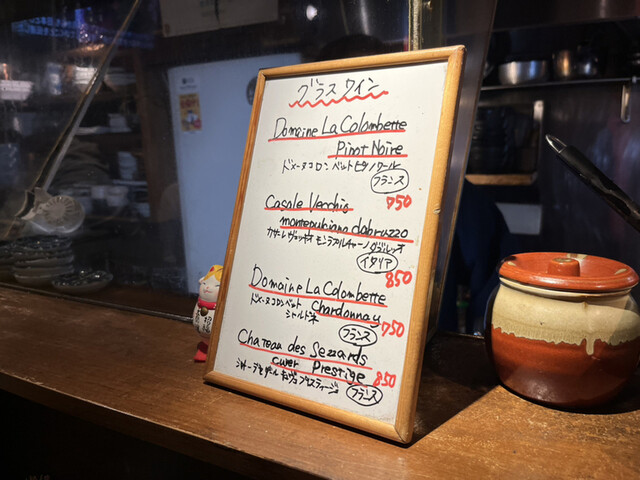 グラスワイン
Domaine La Colombette
Pinot Noire
ドメーヌコロンベットピノノワール
フランス
750
Casale Vecchio
montepulciano dabruzzo
カサーレヴェッキオ モンテプルチャーノダブルッツオ
イタリア
850
Domaine La Colombette
ドメーヌコロンベット Chardonnay
シャルドネ
フランス
750
Chateau des Sezzards
cuver Prestige
850
フランス